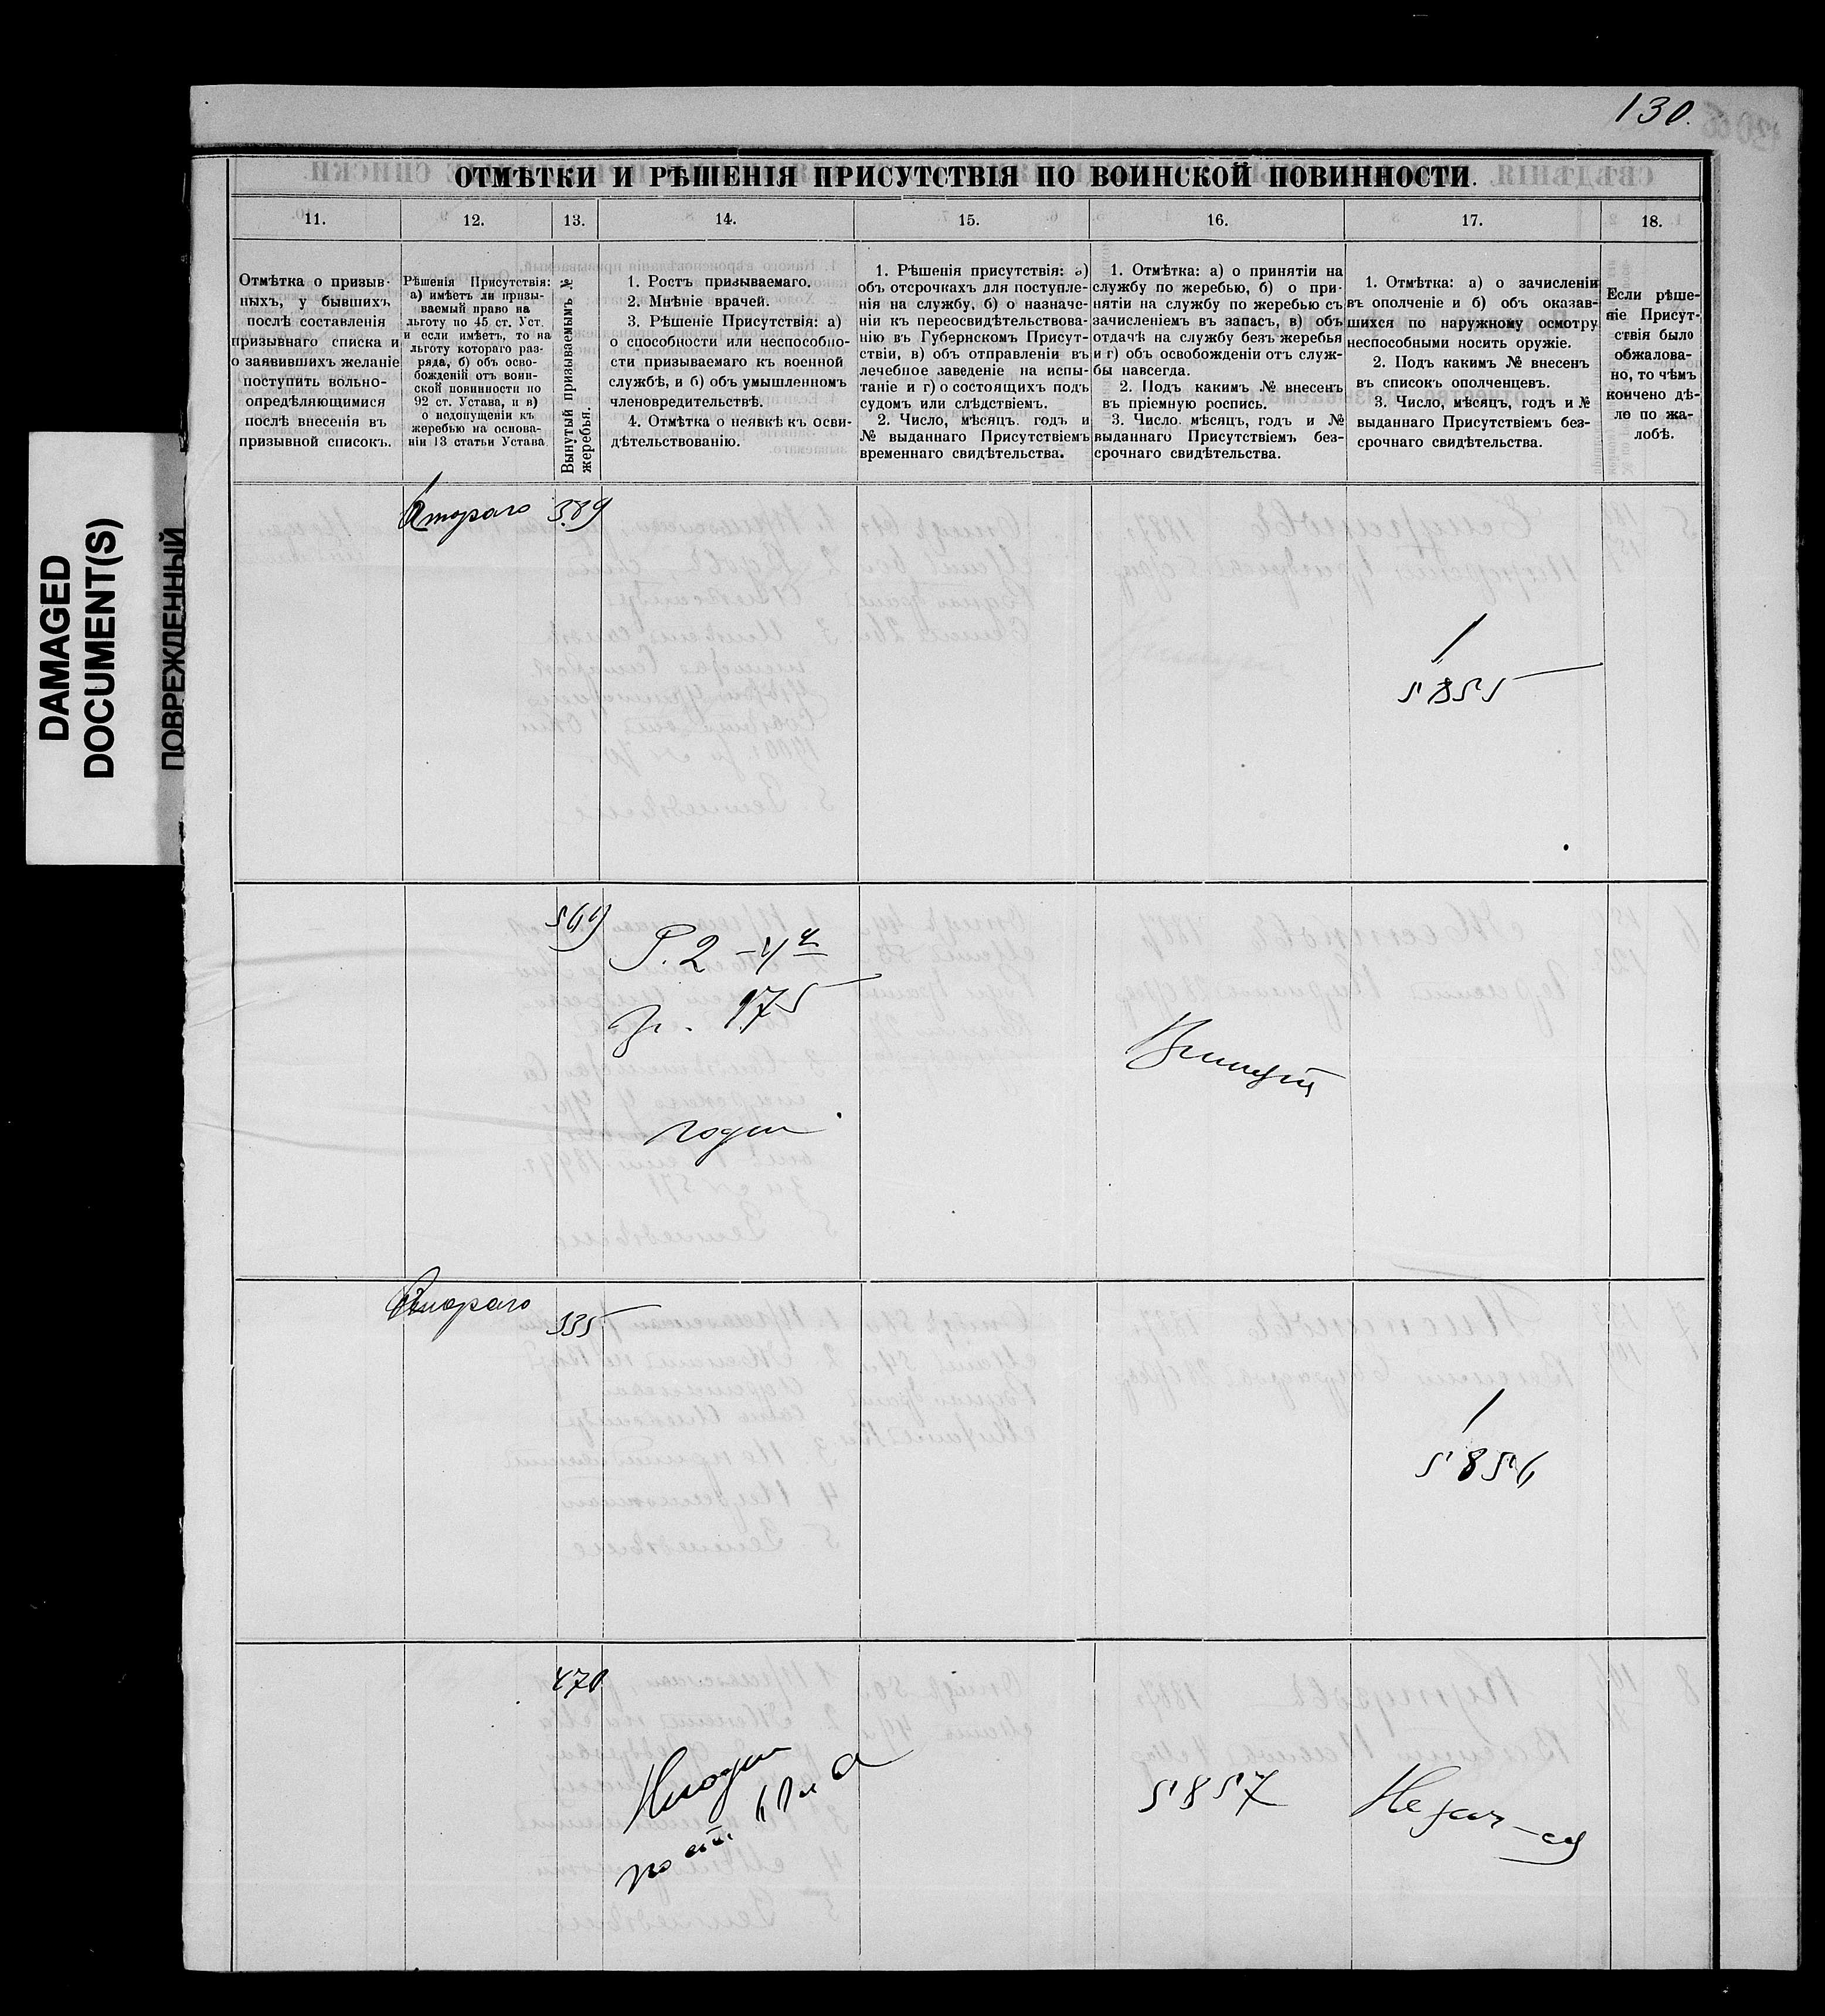 130.
DAMAGED
DOCUMENT(S)
ПОВРЕЖДЕННЫЙ
ОТМѢТКИ И РѢШЕНІЯ ПРИСУТСТВІЯ ПО ВОИНСКОЙ ПОВИННОСТИ.
11. 12. 13. 14. 15. 16. 17. 18.
Отмѣтка о призыв-
ныхъ, у бывшихъ
послѣ составленія
призывнаго списка и
о заявившихъ желаніе
поступить вольно-
опредѣляющимися
послѣ внесенія въ
призывной списокъ.
Рѣшенія Присутствія:
а) имѣетъ ли призы-
ваемый право на
льготу по 45 ст. Уст.
и если имѣетъ, то на
льготу котораго раз-
ряда, б) объ осво-
божденій отъ воин-
ской повинности по
92 ст. Устава, и в)
о недопущеніи къ
жеребью на основа-
ніи 13 статьи Устава
Вынутый призываемымъ №
жеребья.
1. Ростъ призываемаго.
2. Мнѣніе врачей.
3. Рѣшеніе Присутствія: а)
о способности или неспособно-
сти призываемаго къ военной
службѣ, и б) объ умышленномъ
членовредительствѣ.
4. Отмѣтка о неявкѣ къ осви-
дѣтельствованію.
1. Рѣшенія присутствія: а)
объ отсрочкахъ для поступле-
нія на службу, б) о назначе-
ніи къ переосвидѣтельствова-
нію въ Губернскомъ Присут-
ствіи, в) объ отправленіи въ
лечебное заведеніе на испы-
таніе и г) о состоящихъ подъ
судомъ или слѣдствіемъ.
2. Число, мѣсяцъ. годъ и
№ выданнаго Присутствіемъ
временнаго свидѣтельства.
1. Отмѣтка: а) о принятіи на
службу по жеребью, б) о при-
нятіи на службу по жеребью съ
зачисленіемъ въ запасъ, в) объ
отдачѣ на службу безъ жеребья
и г) объ освобожденіи отъ служ-
бы навсегда.
2. Подъ какимъ № внесенъ
въ пріемную роспись.
3. Число. мѣсяцъ, годъ и №
выданнаго Присутствіемъ без-
срочнаго свидѣтельства.
1. Отмѣтка: а) о зачисленіи
въ ополченіе и б) объ оказав-
шихся по наружному осмотру
неспособными носить оружіе.
2. Подъ какимъ № внесенъ
въ списокъ ополченцевъ.
3. Число, мѣсяцъ, годъ и №
выданнаго Присутствіемъ без-
срочнаго свидѣтельства.
Если рѣше-
ніе Присут-
ствія было
обжалова-
но, то чѣмъ
кончено дѣ-
ло по жа-
лобѣ.
Втораго 389
1
5855
569
Р. 2 - 4
175
годен
Втораго
335
1
5856
470
5857